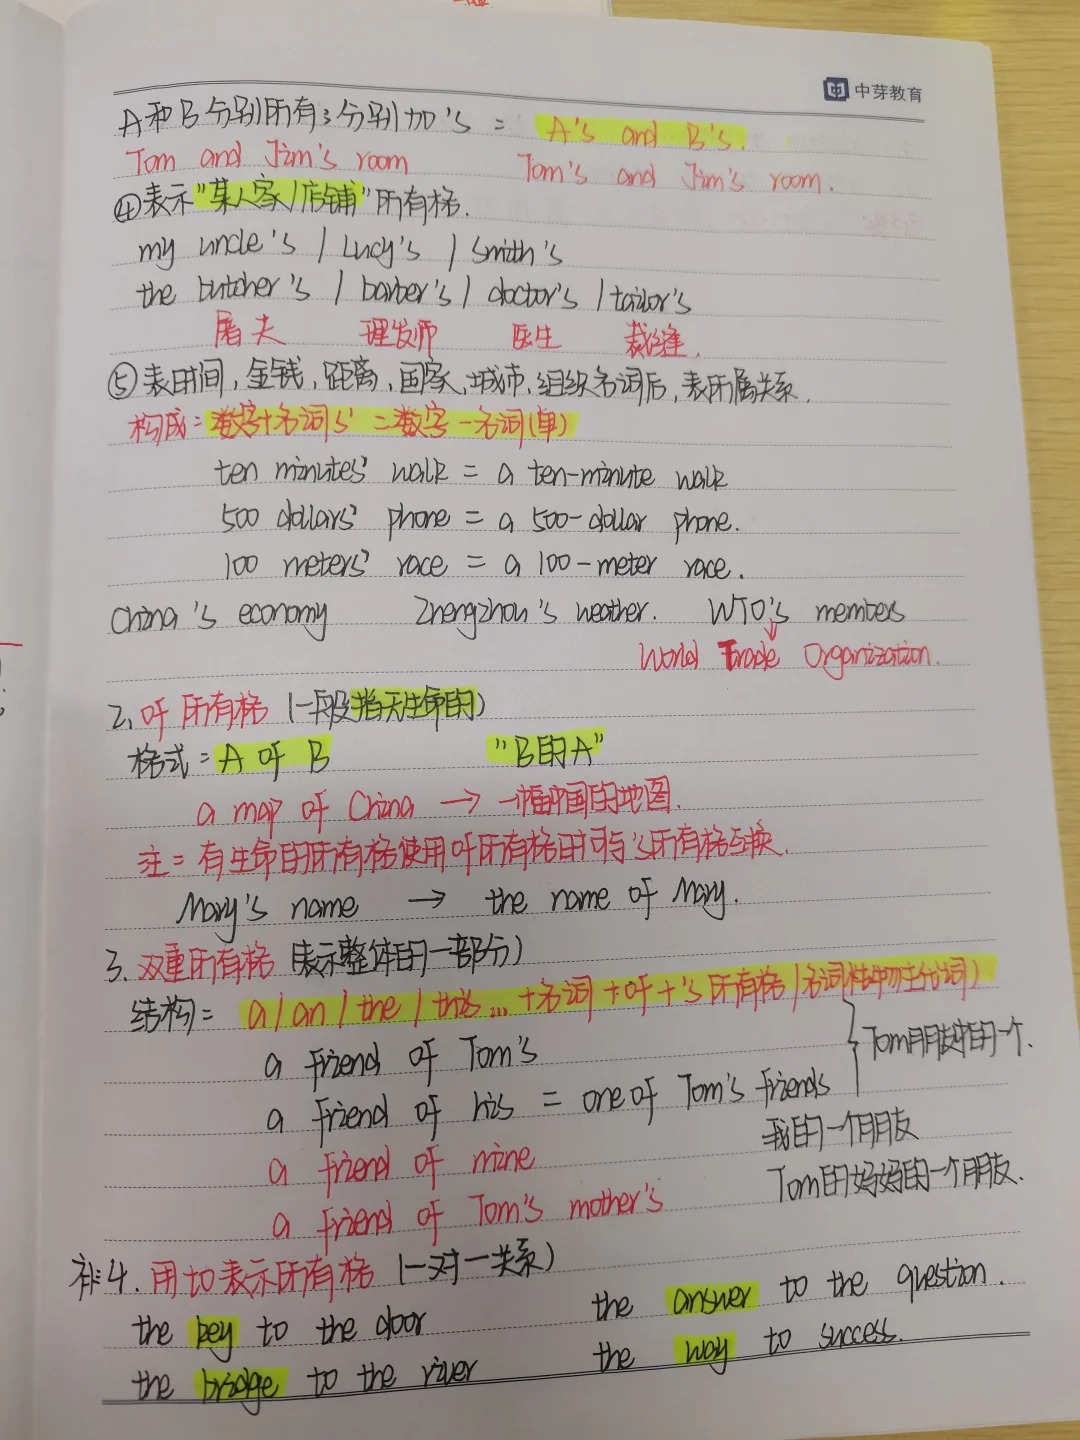 中芽教育
A和B分别所有:分别加's = A's and B's.
Tom and Jim's room Tom's and Jim's room.
④表示"某人家/店铺"所有格.
my uncle's / Lucy's / Smith's
the butcher's / barber's / doctor's / tailor's
屠夫 理发师 医生 裁缝.
⑤表时间,金钱,距离,国家,城市,组织名词后,表所属关系.
构成:数字+名词s' = 数字-名词(单)
ten minutes' walk = a ten-minute walk
500 dollars' phone = a 500-dollar phone.
100 meters' race = a 100-meter race.
China's economy Zhengzhou's weather. WTO's members
World Trade Organization.
2. of 所有格 (一般指无生命的)
格式:A of B "B的A"
a map of China → 一幅中国的地图.
注:有生命的所有格使用of所有格时可与's所有格互换.
Mary's name → the name of Mary.
3. 双重所有格 (表示整体的一部分)
结构: a/an/the/this... +名词+of+'s所有格/名词性物主代词)
a friend of Tom's Tom朋友中的一个.
a friend of his = one of Tom's friends
a friend of mine 我的一个朋友
a friend of Tom's mother's Tom的妈妈的一个朋友.
补:4. 用to表示所有格 (一对一关系)
the key to the door the answer to the question.
the bridge to the river the way to success.